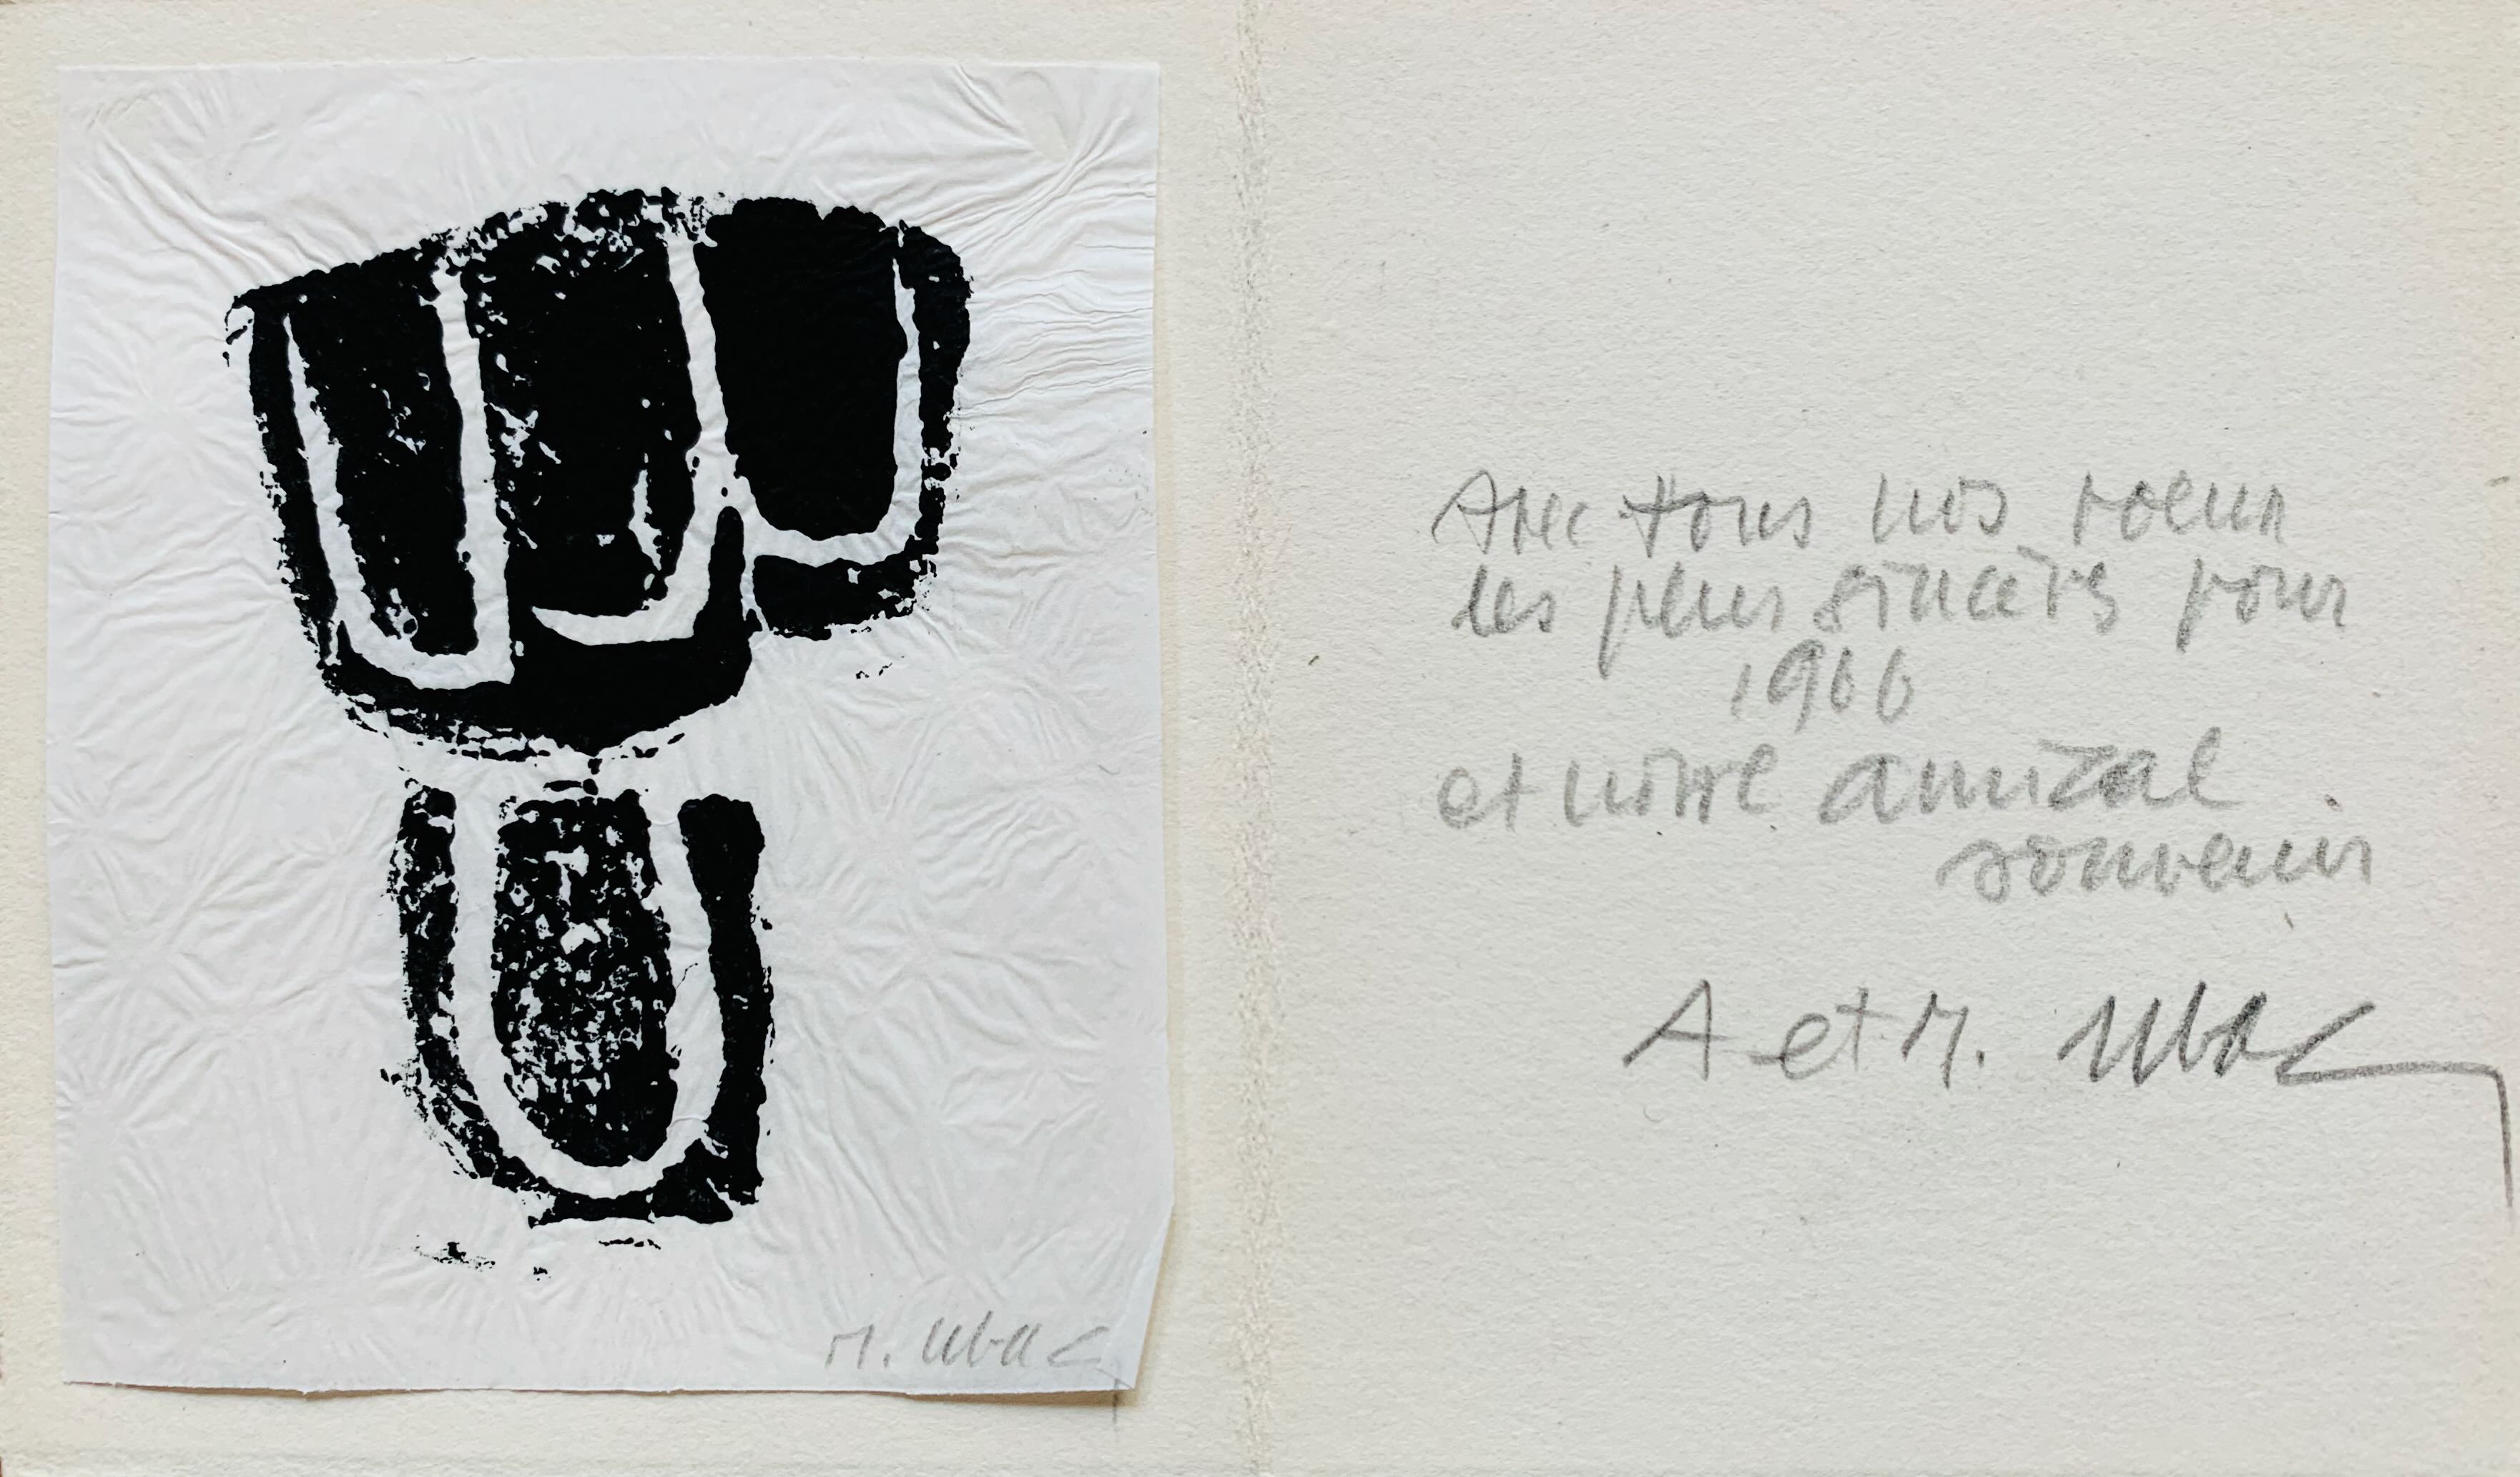 R. Ubac
Avec tous nos voeux
les plus sincères pour
1966
et notre amical
souvenir
A et R. Ubac